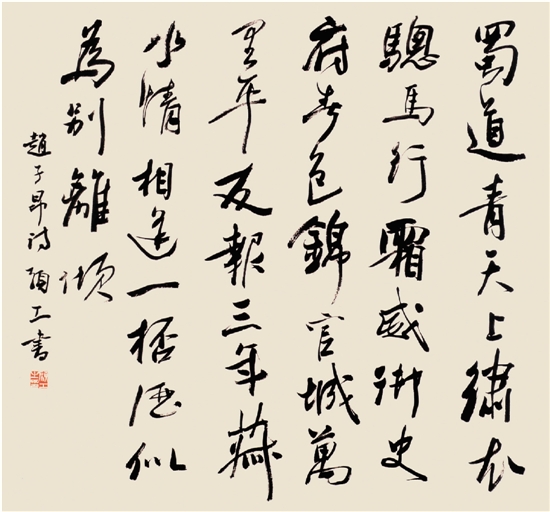 蜀道青天上繡衣
驄馬行霜威御史
府春色錦官城萬
里平反報三年菽
水情相送一桮酒似
為別離傾
趙子昂詩 工書